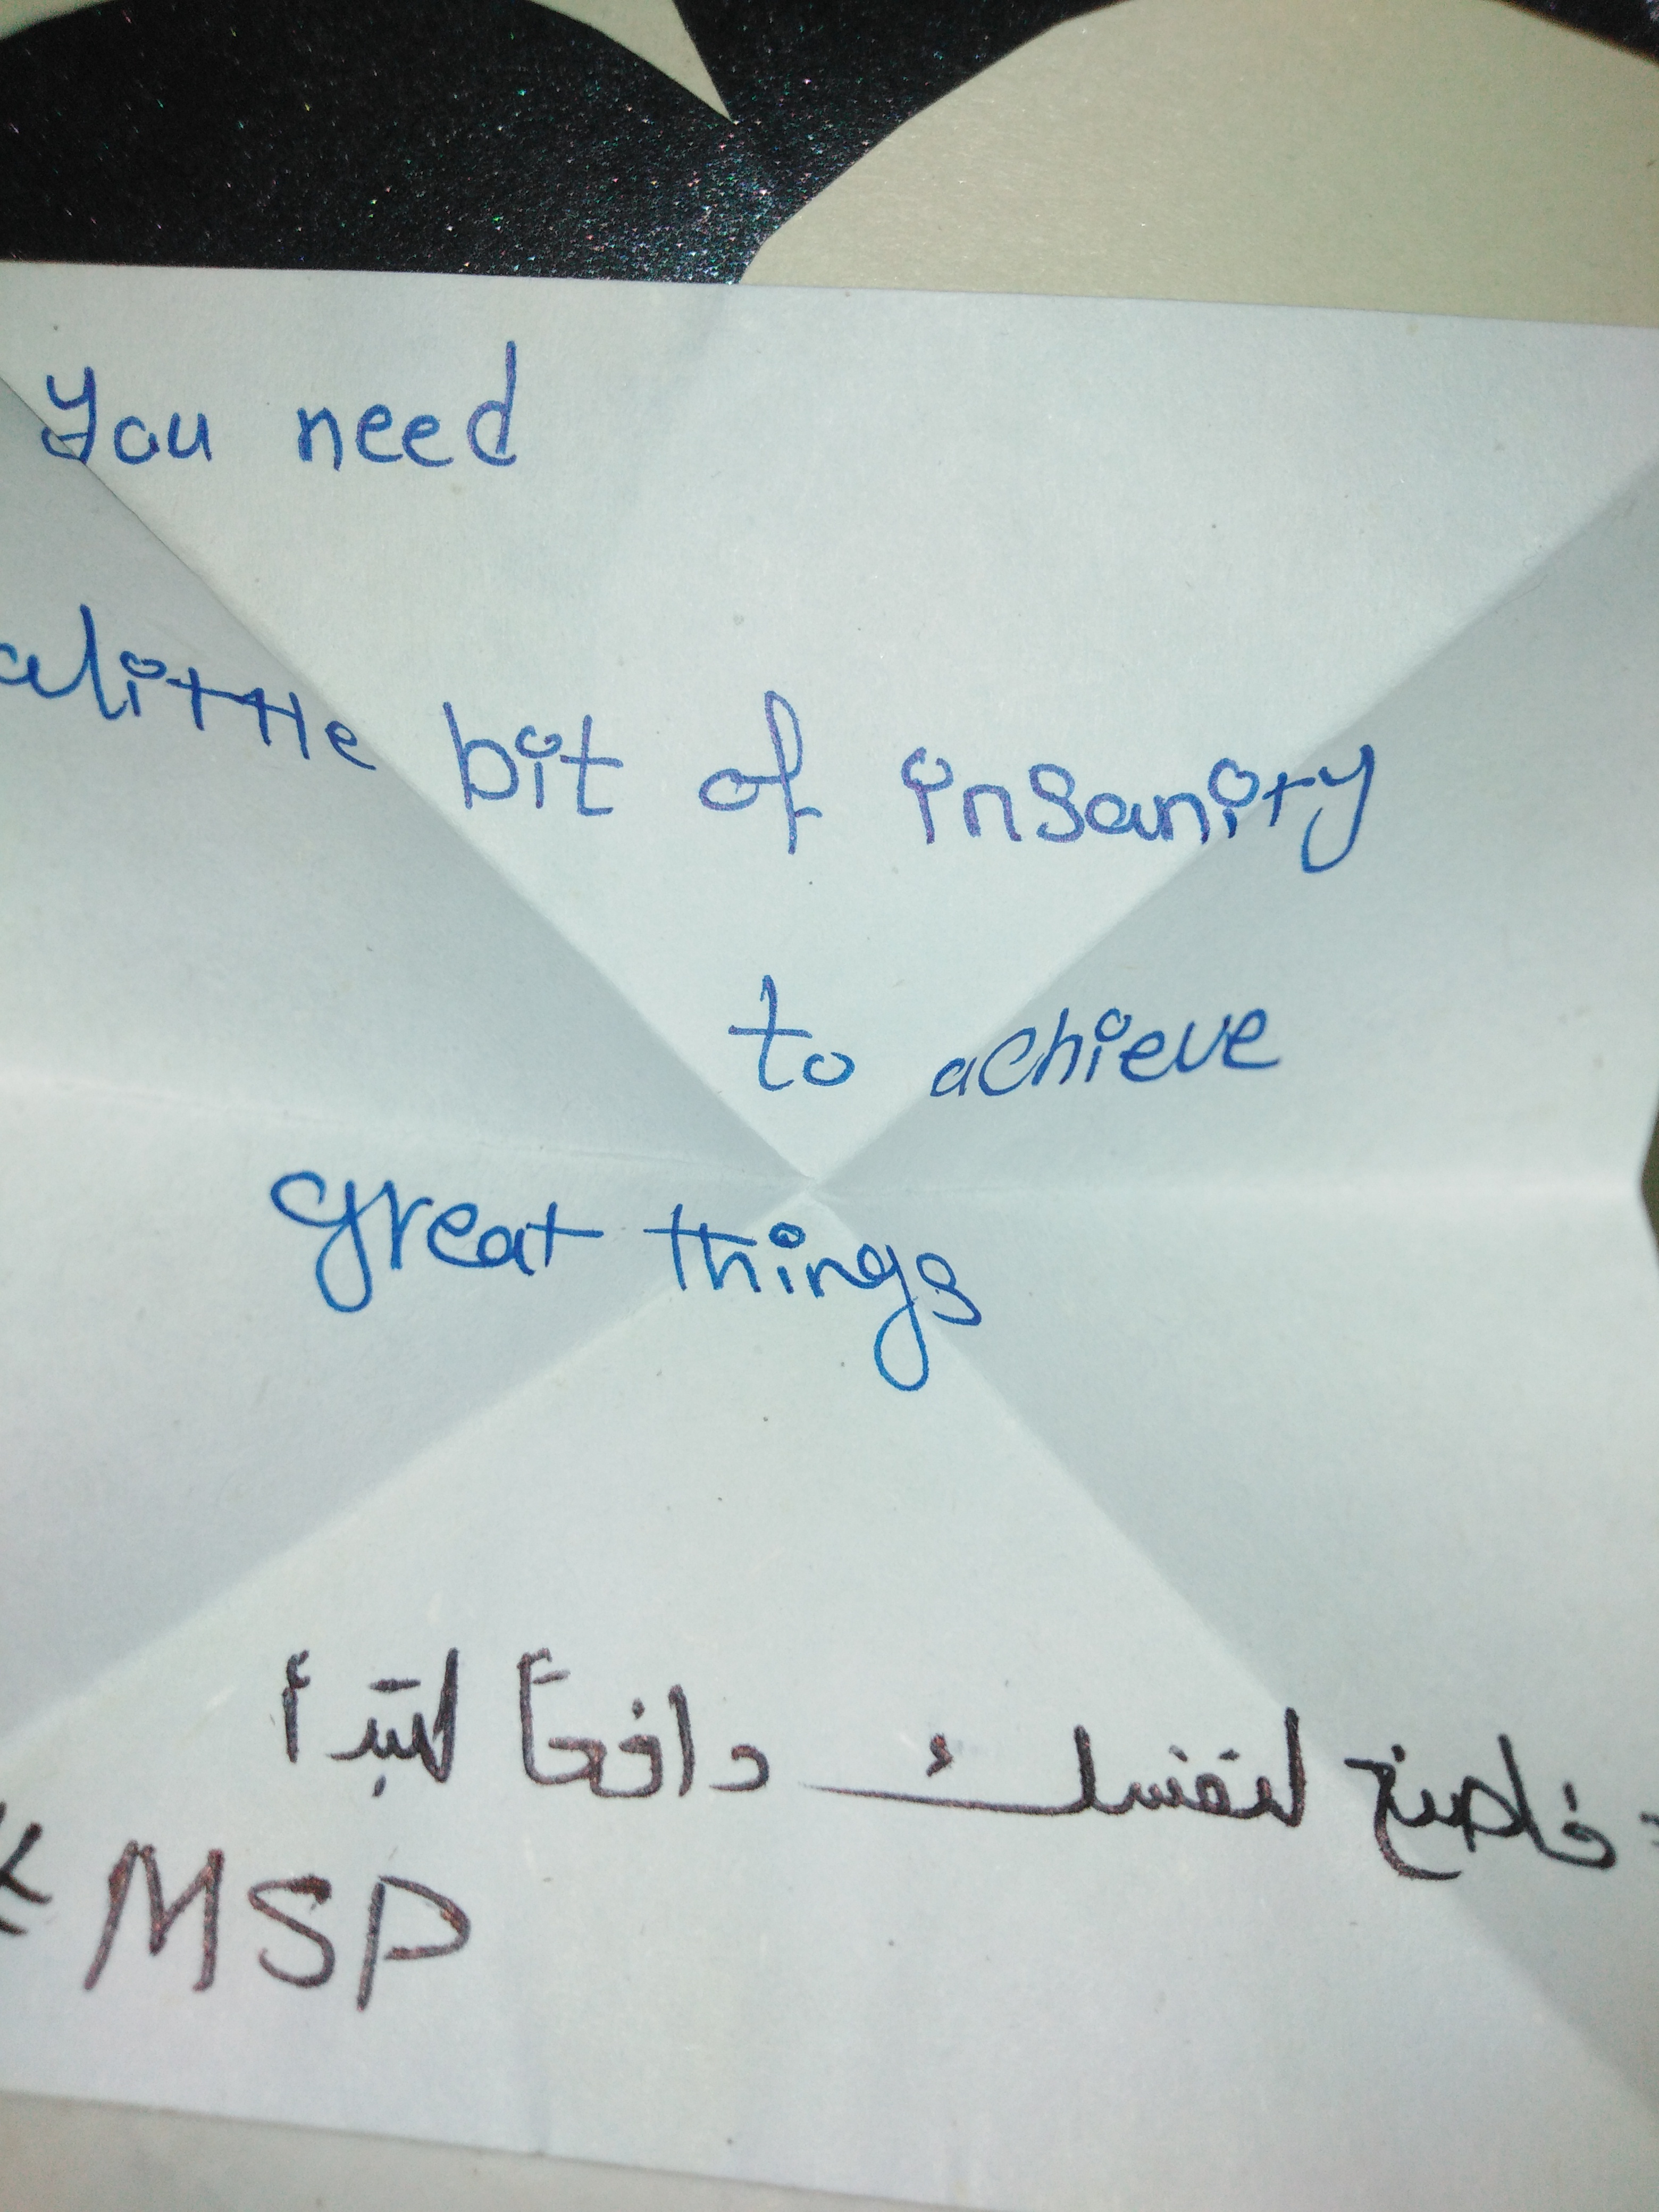 You need
alittle bit of insanity
to achieve
great things
فاصنع لنفسك دافعاً لتبدأ
MSP